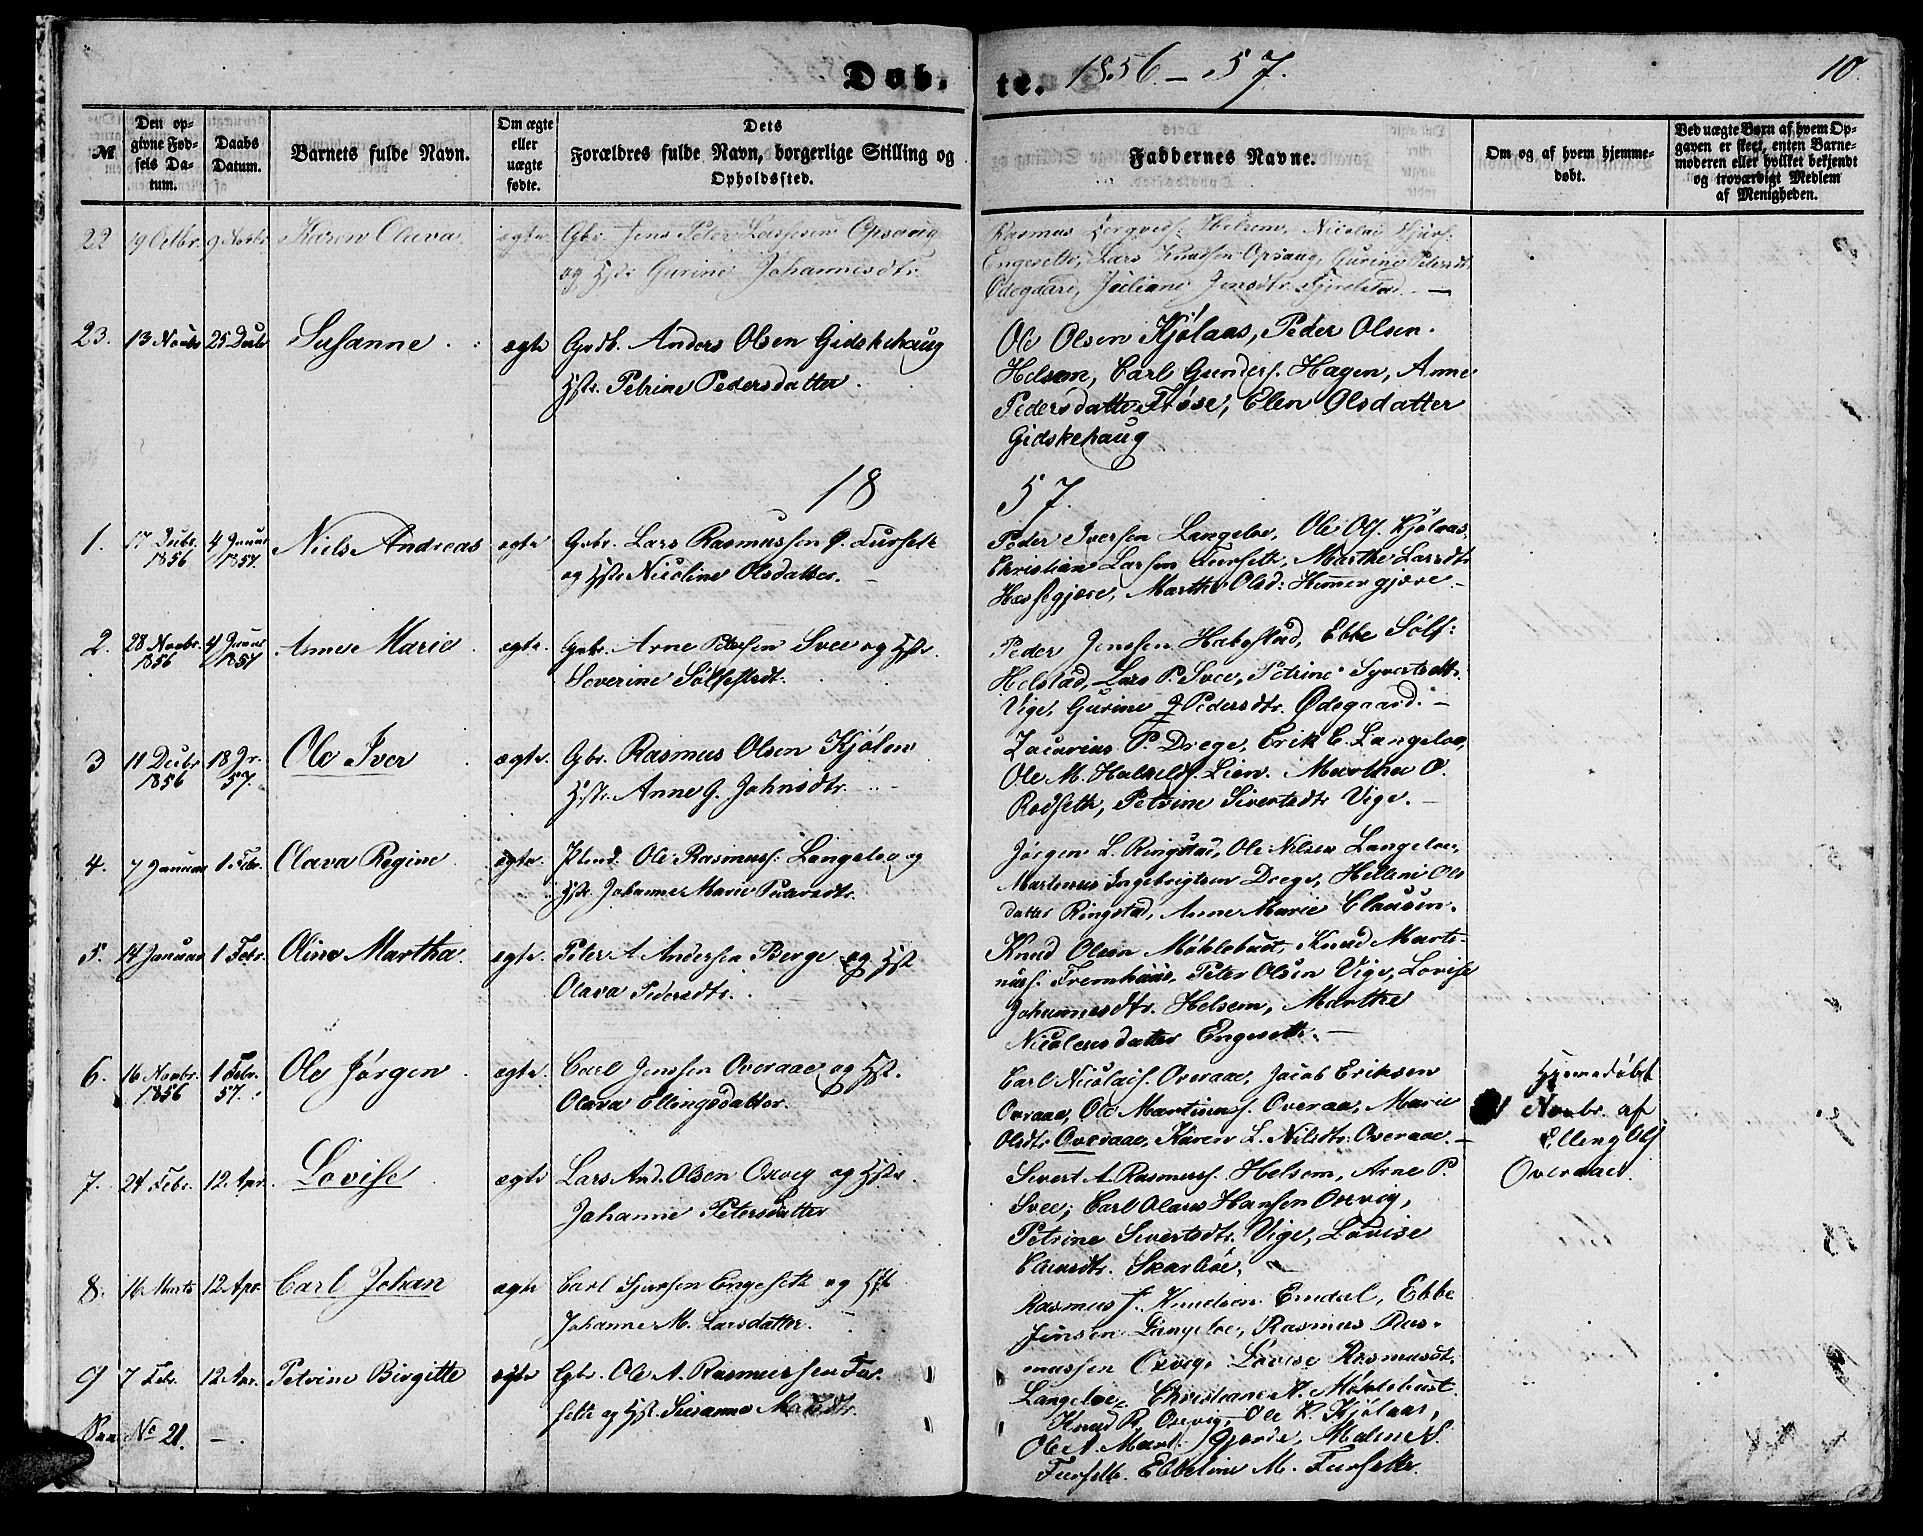 Døb-
te. 1856-57.
10.
№
Den op-
givne Fød-
sels Da-
tum.
Daabs
Datum.
Barnets fulde Navn.
Om ægte
eller
uægte
fødte.
Dets
Forældres fulde Navn, borgerlige Stilling og
Opholdssted.
Faddernes Navne.
Om og af hvem hjemme-
døbt.
Ved uægte Børn af hvem Op-
gaven er skeet, enten Barne-
moderen eller hvilket bekjendt
og troværdigt Medlem
af Menigheden.
22 19 Octbr. 9 Novbr. Karen Olava ægte Gbr. Jens Peter Lassesen Opsaug
og Hstr Gurine Johannesdtr.
Rasmus Helsem, Nicolai Sjurs.
Engeseth, Lars Knudsen Opsaug, Gurine Petersdt.
Ødegaard, Juliane Jensdtr. Fjørstad. —
23. 13 Novbr 25 Decbr Susanne. ægte Gbdb. Anders Olsen Gidskehaug
Hstr. Petrine Pedersdatter.
Ole Olsen Kjølaas, Peder Olsen
Helsem, Carl Gunders. Hagen, Anne
Pedersdatter Frøse, Elen Olsdatter
Gidskehaug
18
57.
1. 17 Decbr. 1856 4 Januar 1857. Niels Andreas ægte Gbr. Lars Rasmussen Ø. Furseth
og Hstr Nicoline Olsdatter. —
Peder Iversen Langeloe, Ole Ols. Kjølaas,
Christian Larsen Furseth, Marthe Larsdtr
Hessegjære, Marthe Olsd: Hemmergjære —
2. 28 Novbr. 1856 4 Januar 1857 Anne Marie ægte. Gbr. Arne Petersen Svee og Hstr.
Severine Sølfestsdt.
Peder Jenssen Habostad, Ebbe Sølf:
Helstad, Lars P. Svee, Petrine Syvertsdtr.
Vige, Gurine J Pedersdtr. Ødegaard. —
3 11 Decbr 1856 18 Jr. 57. Ole Iver ægte. Gbr. Rasmus Olsen Kjølen
Hstr. Anne G. Johnsdtr.
Zacarias P. Drege, Erik C. Langeloe,
Ole M. Lien. Martha O.
Rødseth, Petrine Sivertsdtr Vige. —
4. 7 Januar 1 Febr. Olava Regine ægte. Ole Rasmuss. Langeloe og
Hstr. Johanne Marie Pedersdtr.
Jørgen L. Ringstad, Ole Nilsen Langeloe,
Martinus Ingebrigtsen Drege, Helline Ols
datter Ringstad, Anne Marie Clausen.
5. 14 Januar 1 Febr. Oline Martha. ægte. Peter A Andersen Berge og Hst
Olava Pedersdtr.
Knud Olsen Møklebust, Knud Marti-
nuss. Fremhuus, Peter Olsen Vige, Lovise
Johannesdtr. Helsem, Marthe
Nicolensdatter Engeseth. —
6. 16 Novbr. 1856 1 Febr. 57. Ole Jørgen ægte. Carl Jenssen Overaae og Hst.
Olava Ellingsdatter.
Carl Nicolais. Overaae, Jacob Eriksen
Overaae, Ole Martinuss. Overaa, Marie
Olsdtr Overaae, Karen L. Nilsdtr. Overaae. —
Hjemedøbt
Novbr. af
Elling Ols
Overaae.
7. 24 Febr. 12 Apr. Lovise ægte Lars And. Olsen Oxevig og Hstr.
Johanne Petersdatter
Sivert A Rasmuss. Helsem, Arne P.
Svee, Carl Olaus Hansen Oxevig,
Petrine Sivertsdtr. Vige, Lovise
Clausdtr. Skarbøe. —
8. 16 Marts 12 Apr. Carl Johan ægte Carl Sjursen Engeseth og Hst
Johanne M. Larsdatter.
Rasmus J. Knudsen Emdal, Ebbe
Jensen Langeloe, Rasmus Ras-
mussen Oxevig, Lovise Rasmusdt.
Langeloe, Christiane N. Møklebust.
9 7 Febr. 12 Apr. Petrine Birgitte ægte Gbr. Ole A. Rasmussen Fur-
seth og Hst. Susanne
Knud R. Oxevig, Ole K. Kjølaas,
Ole A. Mart. Gjerde, Malene S.
Furseth. Ebbeline M. Furseth.
No 21. —